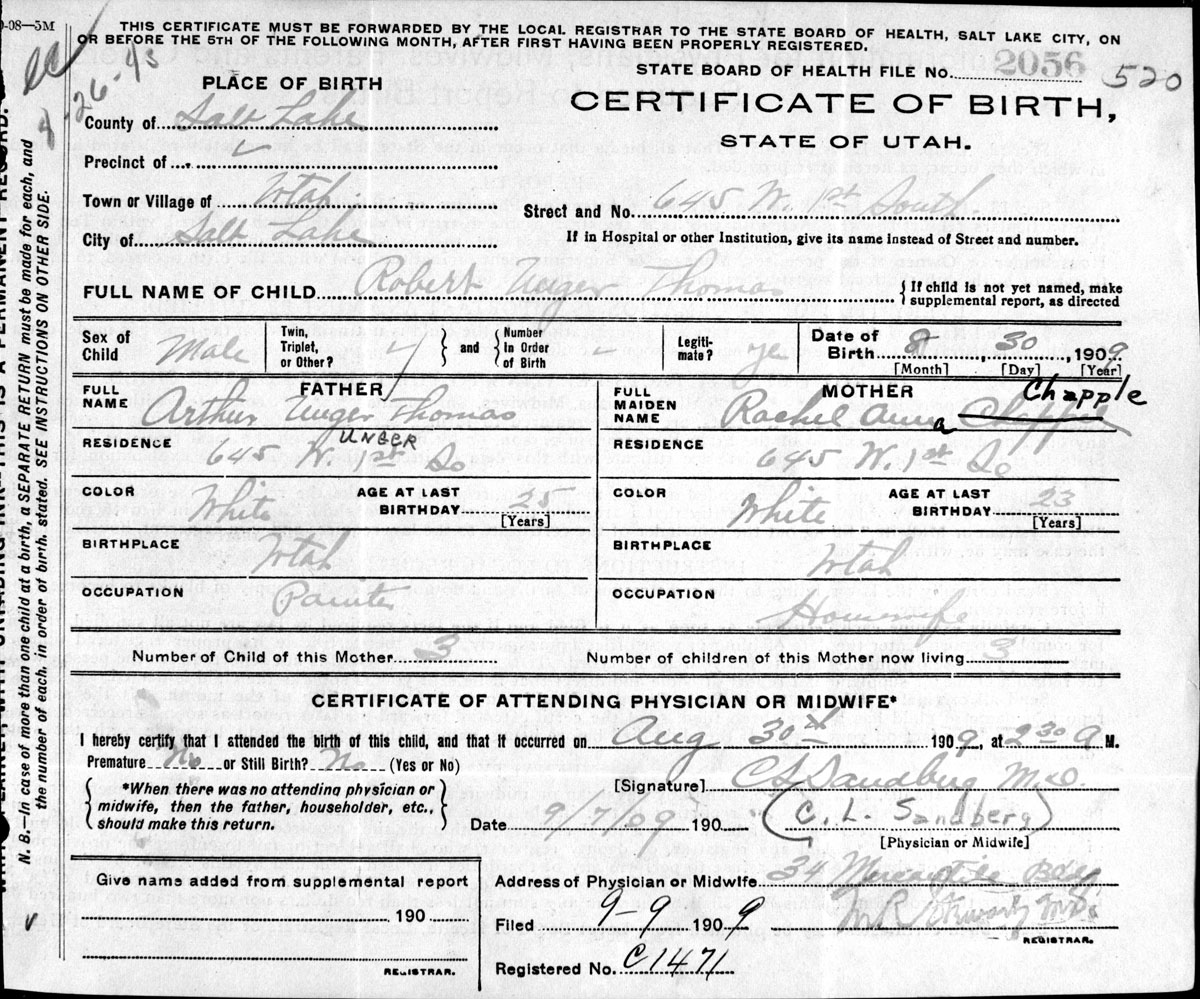 0-08—5M
THIS CERTIFICATE MUST BE FORWARDED BY THE LOCAL REGISTRAR TO THE STATE BOARD OF HEALTH, SALT LAKE CITY, ON
OR BEFORE THE 5TH OF THE FOLLOWING MONTH, AFTER FIRST HAVING BEEN PROPERLY REGISTERED.
STATE BOARD OF HEALTH FILE NO. 2056 520
CERTIFICATE OF BIRTH,
STATE OF UTAH.
PLACE OF BIRTH
County of Salt Lake
Precinct of
Town or Village of Utah
City of Salt Lake
Street and No. 645 W. 1st South.
If in Hospital or other Institution, give its name instead of Street and number.
FULL NAME OF CHILD Robert Unger Thomas
{ If child is not yet named, make
supplemental report, as directed
Sex of Child Male
Twin, Triplet, or Other?
and
Number in Order of Birth
Legiti- mate? yes
Date of Birth 8, 30, 1909
[Month] [Day] [Year]
FATHER
FULL NAME Arthur Unger Thomas
UNGER
RESIDENCE 645 W. 1st So
COLOR White
AGE AT LAST BIRTHDAY 25
[Years]
BIRTHPLACE Utah
OCCUPATION Painter
MOTHER
FULL MAIDEN NAME Rachel Anna Chapple
RESIDENCE 645 W. 1st So
COLOR White
AGE AT LAST BIRTHDAY 23
[Years]
BIRTHPLACE Utah
OCCUPATION Housewife
Number of Child of this Mother 3
Number of children of this Mother now living 3
CERTIFICATE OF ATTENDING PHYSICIAN OR MIDWIFE*
I hereby certify that I attended the birth of this child, and that it occurred on Aug 30th 1909, at 2 30 A M.
Premature No or Still Birth? No (Yes or No)
[Signature] C L Sandberg M.D.
*When there was no attending physician or
midwife, then the father, householder, etc.,
should make this return.
Date 9/7/09 190
(C. L. Sandberg)
[Physician or Midwife]
Give name added from supplemental report
190
REGISTRAR.
Address of Physician or Midwife 34 Mercantile Bldg.
Filed 9-9 1909
M R Stewart M.D.
REGISTRAR.
Registered No. C1471
N. B.—In case of more than one child at a birth, a SEPARATE RETURN must be made for each, and
the number of each, in order of birth, stated. SEE INSTRUCTIONS ON OTHER SIDE.